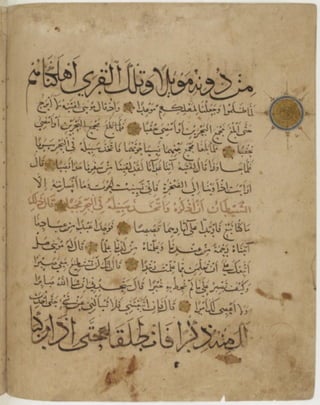 من دونه موئلا وتلك القرى أهلكناهم
لما ظلموا وجعلنا لمهلكهم موعدا وإذ قال موسى لفتيه لا أبرح
حتى أبلغ مجمع البحرين أو أمضي حقبا فلما بلغا مجمع البحرين أو أمضي
حقبا فلما بلغا مجمع بينهما نسيا حوتهما فاتخذ سبيله في البحر سربا
فلما جاوزا قال لفتيه آتنا غداءنا لقد لقينا من سفرنا هذا نصبا قال
أرأيت إذ أوينا إلى الصخرة فإني نسيت الحوت وما أنسانيه إلا
الشيطان أن أذكره واتخذ سبيله في البحر عجبا قال ذلك
ما كنا نبغ فارتدا على آثارهما قصصا فوجدا عبدا من عبادنا
آتيناه رحمة من عندنا وعلمناه من لدنا علما قال له موسى هل
أتبعك على أن تعلمن مما علمت رشدا قال إنك لن تستطيع معي صبرا
وكيف تصبر على ما لم تحط به خبرا قال ستجدني إن شاء الله صابرا
ولا أعصي لك أمرا قال فإن اتبعتني فلا تسألني عن شيء حتى أحدث
لك منه ذكرا فانطلقا حتى إذا ركبا